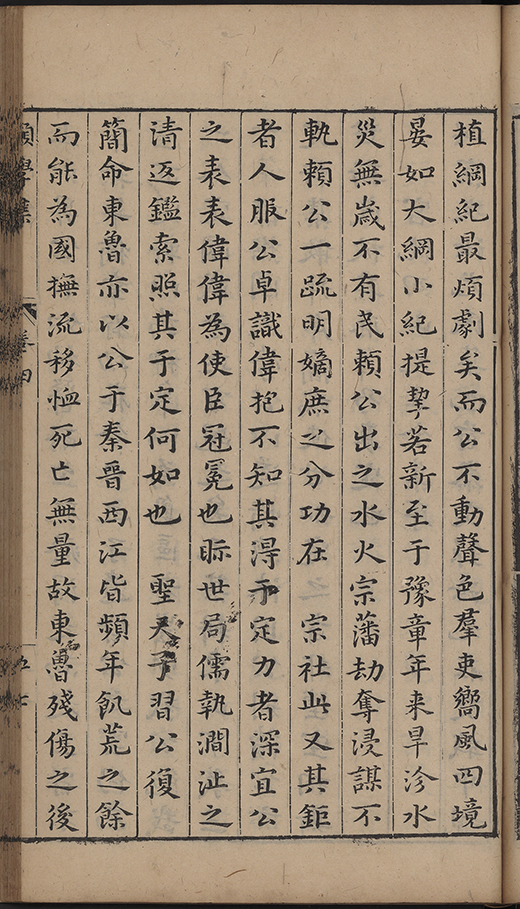 植綱紀最煩劇矣而公不動聲色羣吏嚮風四境
晏如大綱小紀提挈若新至于豫章年来旱沴水
災無歲不有民賴公出之水火宗藩劫奪浸謀不
軌賴公一疏明嫡庶之分功在　宗社此又其鉅
者人服公卓識偉抱不知其淂于定力者深宜公
之表表偉偉為使臣冠冕也眎世局儒執澗沚之
清返鑑索照其于定何如也　聖天子習公復
簡命東魯亦以公于秦晋西江皆頻年飢荒之餘
而能為國撫流移恤死亡無量故東魯殘傷之後
卷四